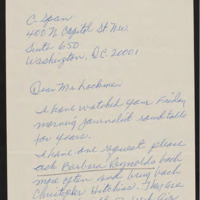 C. Span
400 N. Capitol St N.W.
Suite 650
Washington, D.C. 20001
Dear Mr. Lockman
I have watched your Friday
morning journalist roundtable
for years.
I have one request please
ask Barbara Reynolds back
more often and bring back
Christopher Hitchins. They are